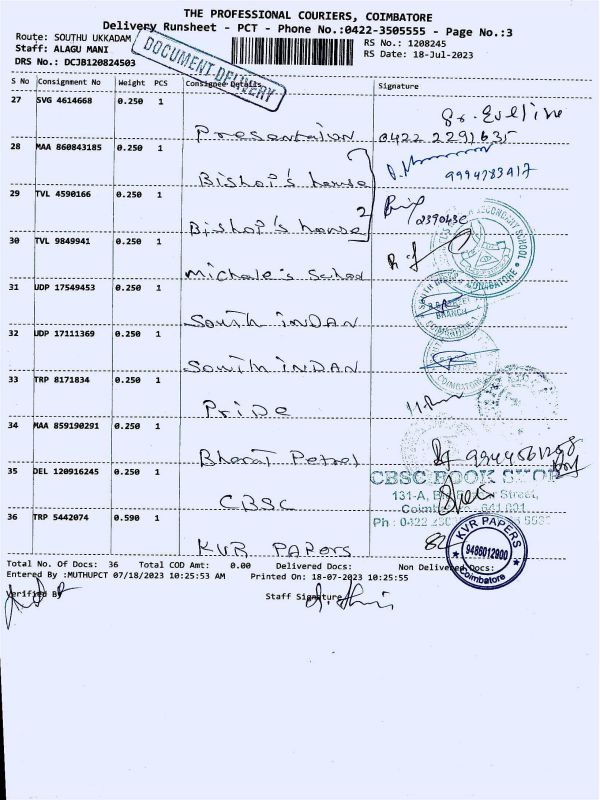 THE PROFESSIONAL COURIERS, COIMBATORE
Delivery Runsheet - PCT - Phone No.:0422-3505555 - Page No.:3
Route: SOUTHU UKKADAM RS No.: 1208245
Staff: ALAGU MANI RS Date: 18-Jul-2023
DRS No.: DCJB120824503
DOCUMENT DELIVERY
S No Consignment No Weight PCS Consignee Details Signature
27 SVG 4614668 0.250 1 Sr. Eveline
Presentation 0422 2291635
28 MAA 860843185 0.250 1
Bishop's house 9994783417
29 TVL 4590166 0.250 1
Bishop's house 2
30 TVL 9849941 0.250 1
Michale's School
SECONDARY SCHOOL
COIMBATORE
31 UDP 17549453 0.250 1
South inDAN
BRANCH
COIMBATORE
32 UDP 17111369 0.250 1
South inDAN
COIMBATORE
33 TRP 8171834 0.250 1
Pride
34 MAA 859190291 0.250 1
Bharat Petrol
35 DEL 120916245 0.250 1
CBSC
CBSC BOOK SHOP
131-A, Street,
Ph : 0422
36 TRP 5442074 0.590 1
KVR PAPERS
KVR PAPERS
9486012900
Coimbatore
Total No. Of Docs: 36 Total COD Amt: 0.00 Delivered Docs: Non Delivered Docs:
Entered By :MUTHUPCT 07/18/2023 10:25:53 AM Printed On: 18-07-2023 10:25:55
Verified By Staff Signature